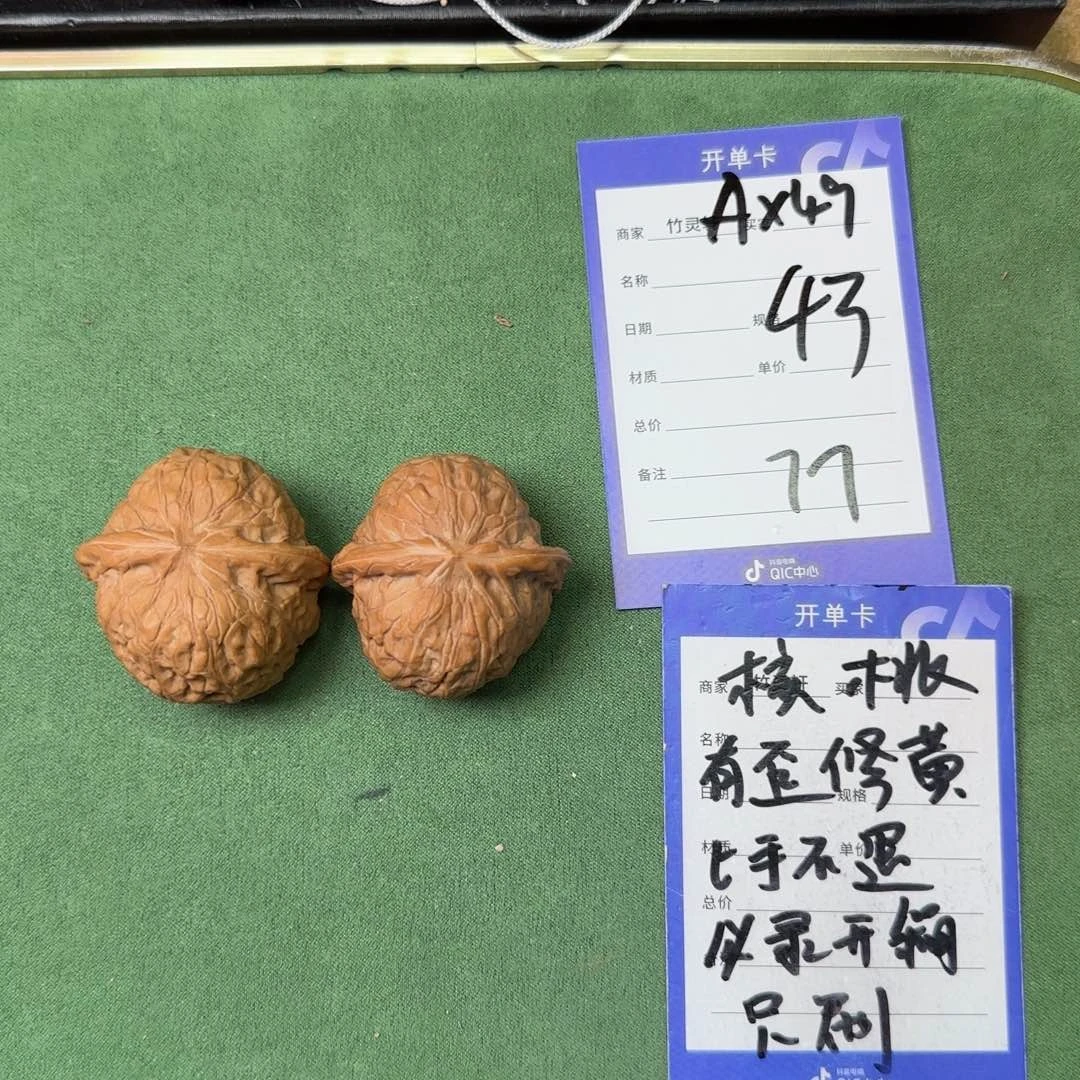 开单卡
Ax49
商家 竹灵 买家
名称
43
日期 规格
材质 单价
总价
备注 77
抖音电商
QIC中心
开单卡
商家 轩 买家
核桃
名称
有歪修黄
日期 规格
上手不退
材质 单价
总价
必录开箱
只刷
抖音电商